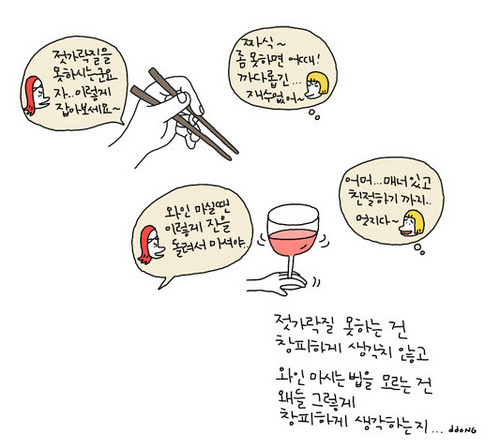 젓가락질을
못하시는군요
자..이렇게
잡아보세요~
짜식~
좀 못하면 어때!
까다롭긴...
재수없어~
와인 마실땐
이렇게 잔을
돌려서 마셔야.
어머...매너있고
친절하기까지..
멋지다~
젓가락질 못하는 건
창피하게 생각치 않고
와인 마시는 법을 모르는 건
왜들 그렇게
창피하게 생각하는지...
ddoNG